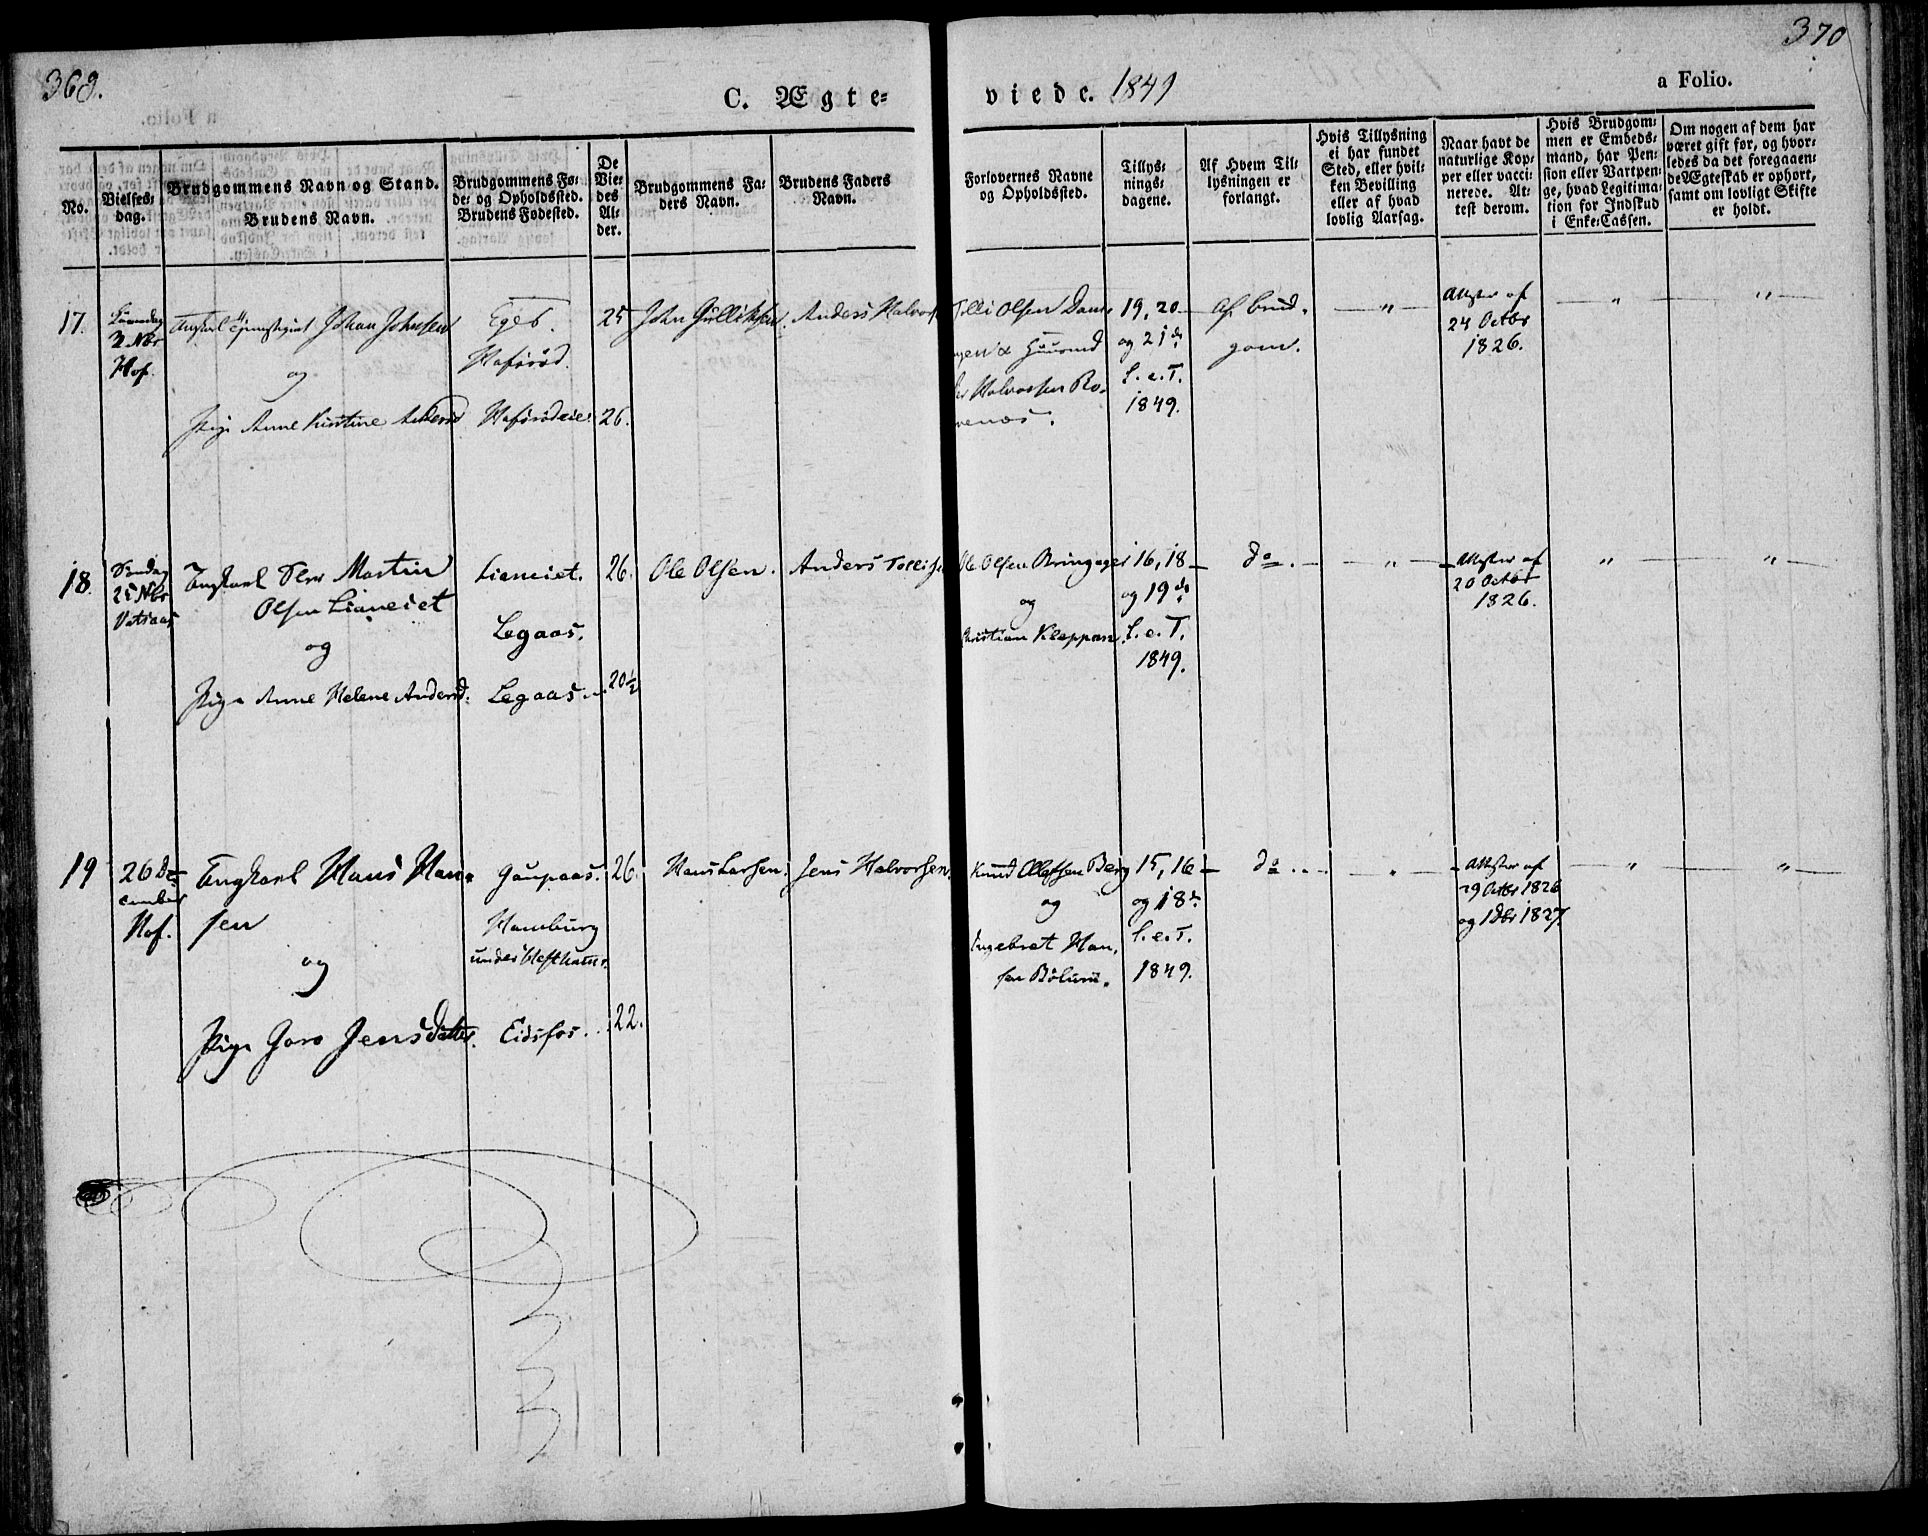 369.
370
C. Ægte=
viede. 1849
a Folio.
No.
Vielses=
dag.
Brudgommens Navn og Stand.
Brudens Navn.
Brudgommens Fø=
de= og Opholdssted.
Brudens Fødested.
De
Vie=
des
Al=
der.
Brudgommens Fa=
ders Navn.
Brudens Faders
Navn.
Forlovernes Navne
og Opholdssted.
Tillys=
nings=
dagene.
Af Hvem Til=
lysningen er
forlangt.
Hvis Tillysning
ei har fundet
Sted, eller hvil=
ken Bevilling
eller af hvad
lovlig Aarsag.
Naar havt de
naturlige Kop=
per eller vacci=
nerede. At=
test derom.
Hvis Brudgom=
men er Embeds=
mand, har Pen=
sion eller Vartpen=
ge, hvad Legitima=
tion for Indskud
i Enke=Cassen.
Om nogen af dem har
været gift før, og hvor=
ledes da det foregaaen=
de Ægteskab er ophørt,
samt om lovligt Skifte
er holdt.
17.
Nbr
Hof.
Ungkarl Johan Johnsen
og
Pige Anne Kirstine Andersd
Egeb.
Hafsrød.
Hafsrødeie.
25
26.
John Gullichsen
Anders Halvors
Olsen Dam=
Halvorsen Ro=
19, 20
og 21de
S. e. T.
1849.
Af Brud=
gom.
"
Attester af
24 Octbr
1826.
"
"
18.
Søndag
25 Nbr
Vatsaas
Ungkarl Martin
Olsen Lianeiet
og
Pige Anne Helene Andersd.
Lianeiet.
Legaas.
Legaas.
26.
20½
Ole Olsen.
Anders Tollefs
Ole Olsen Bringager
og
Christian Kleppan.
16, 18
og 19de
S. e. T.
1849.
do.
"
Attester af
20 Octbr
1826.
"
"
19
26 De=
cember
Hof.
Ungkarl Hans Han=
sen
og
Pige Goro Jensdatter.
Gaupaas.
Hamburg
under
Eidsfos.
26.
22.
Hans Larsen.
Jens Halvorsen.
Knud Ollefsen Berg
og
Ingebret Han=
sen
15, 16
og 18de
S. e. T.
1849.
do.
"
Attester af
29 Octbr 1826
og 1 Dbr 1827.
"
"